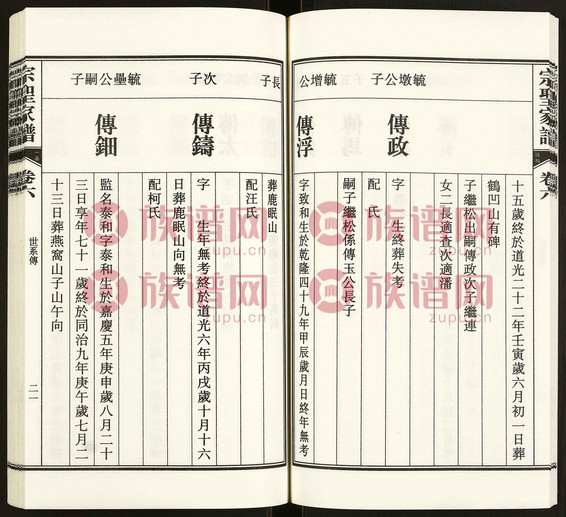 宗聖家譜
卷六
十五歲終於道光二十二年壬寅歲六月初一日葬
鶴凹山有碑
子繼松出嗣傳政次子繼連
女二長適查次適潘
毓墩公子
傳政
字 生終葬失考
配 氏
嗣子繼松係傳玉公長子
毓增公
傳浮
字致和生於乾隆四十九年甲辰歲月日終年無考
長子
葬鹿眠山
配汪氏
次子
傳鑄
字 生年無考終於道光六年丙戌歲十月十六
日葬鹿眠山向無考
配柯氏
毓壘公嗣子
傳鈿
監名泰和字泰和生於嘉慶五年庚申歲八月二十
三日享年七十一歲終於同治九年庚午歲七月二
十三日葬燕窩山子山午向
宗聖家譜
卷六
世系傳
二一
族谱网
www.zupu.cn
族谱网
www.zupu.cn
族谱网
zupu.cn
族谱网
zupu.cn